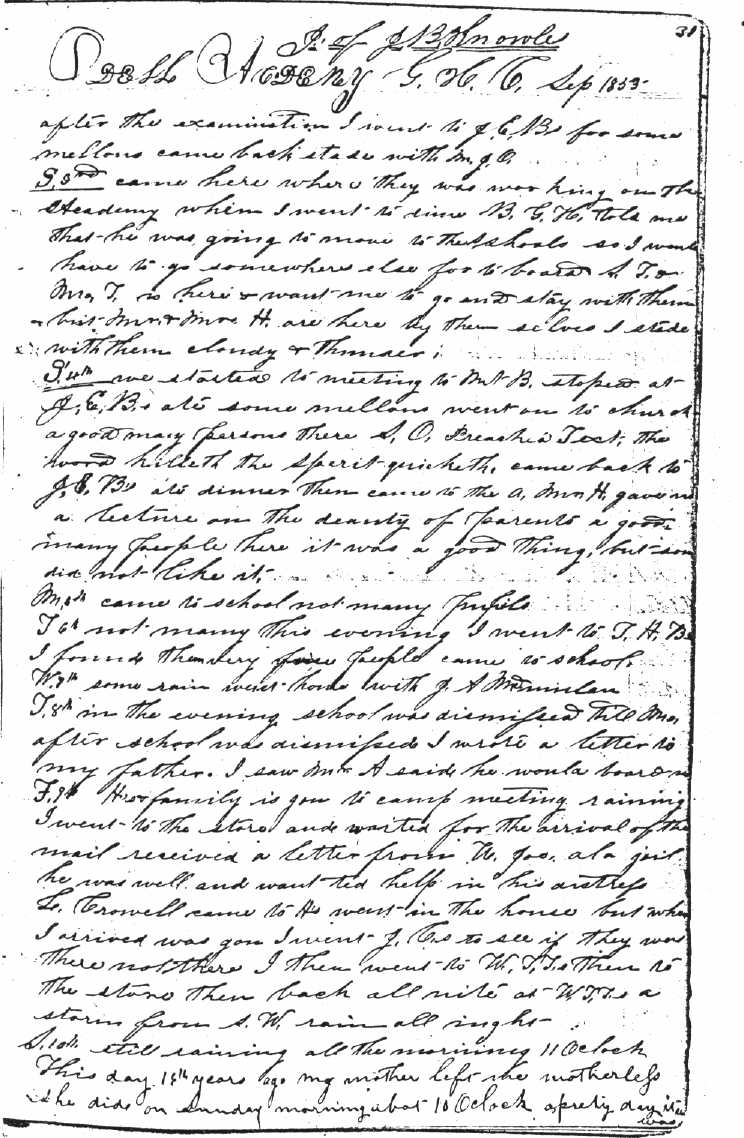 31
J. of J B Knowles
Odell Acedemy G. H. T. Sep 1853
after the examination I went to J. E. Bs for some
mellons came back stade with M. J. O.
S. 3rd came here where they was working on the
Academy whin I went to dine B. G. H. told me
that he was going to move to the Shoals so I would
have to go somewhere else for to board S. T. &
Mrs T. is here & want me to go and stay with them
but Mr. & Mrs H. are here by them selves I stade
with them cloudy & thunder.
S. 4th we started to meeting to Mt B. stoped at
J. E. B.s ate some mellons went on to church
a good many persons there S. O. Preachd Text, the
word killeth the sperit quicketh. came back to
J. E. Bs ate dinner then came to the A. Mr H. gave us
a lecture on the deauty of parents a good
many people here it was a good thing, but som
did not like it.
M. 5th came to school not many pupils
T 6th not many this evening I went to T. H. Bs
I found them very fine people came to school.
W. 7th some rain went home with J. A Mcmulan
T. 8th in the evening school was dismissed till Mo.
after school was dismissed I wrote a letter to
my father. I saw Mr A said he would board
F. 9th H & family is gon to camp meeting raining
I went to the store and waited for the arrival of the
mail received a letter from W. Jas. ala jail
he was well and want ted help in his distress
L. Crowell came to Hs went in the house but when
I arrived was gon I went J. C.s to see if they was
there not there I then went to W. T. T.s then to
the store then back all nite at W T. T.s a
storm from S. W. rain all night
S. 10th still raining all the morning 11 Oclock
This day 18th years ago my mother left me motherless
she dide on sunday morning about 10 Oclock a prety day it
was